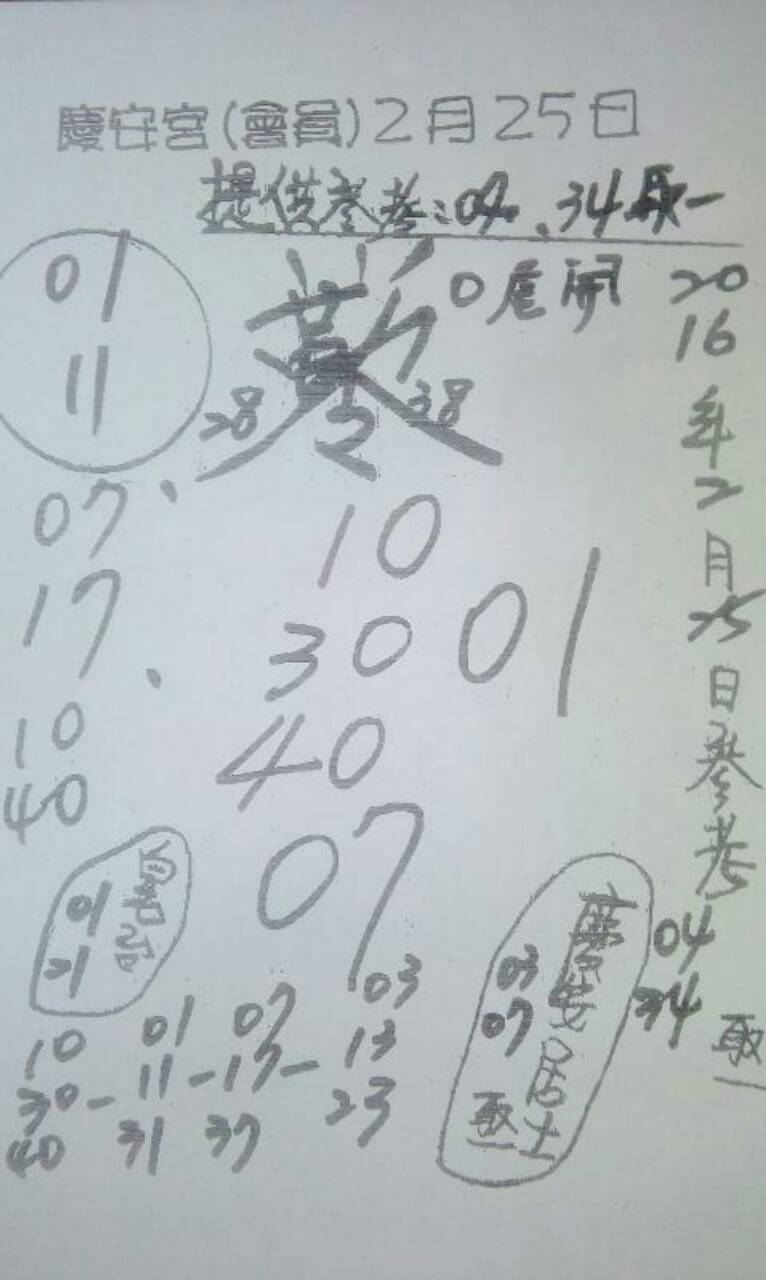 慶安宮(會員)2月25日
提供參考:04、34取一
01
11
0尾開
28
38
07
17
10
40
10
30
40
01
07
01
21
10 01 07 03
30-11-17-13
40 31 37 23
慶安居士
03
07
取一
2016年2月25日參考
04
34
取一